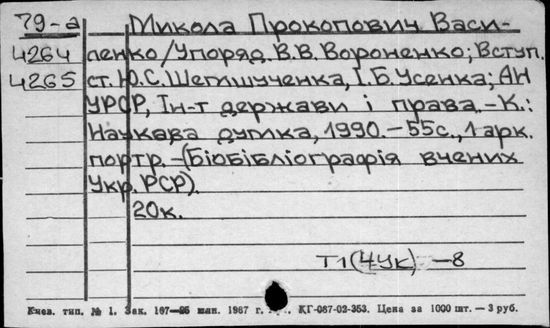 79-а Микола Прокопович Васи-
4264 ленко/Упоряд. В.В. Вороненко; Вступ.
4265 ст. Ю.С. Шемшученка, І.Б. Усенка; АН
УРСР, Ін-т держави і права.-К.:
Наукова думка, 1990.-55с., 1 арк.
портр.-(Біобібліографія вчених
Укр. РСР).
20к.
Т1(4УК) -8
Киев. тип. № 1. Зак. 167-25 млн. 1967 г. КГ-087-02-353. Цена за 1000 шт. - 3 руб.